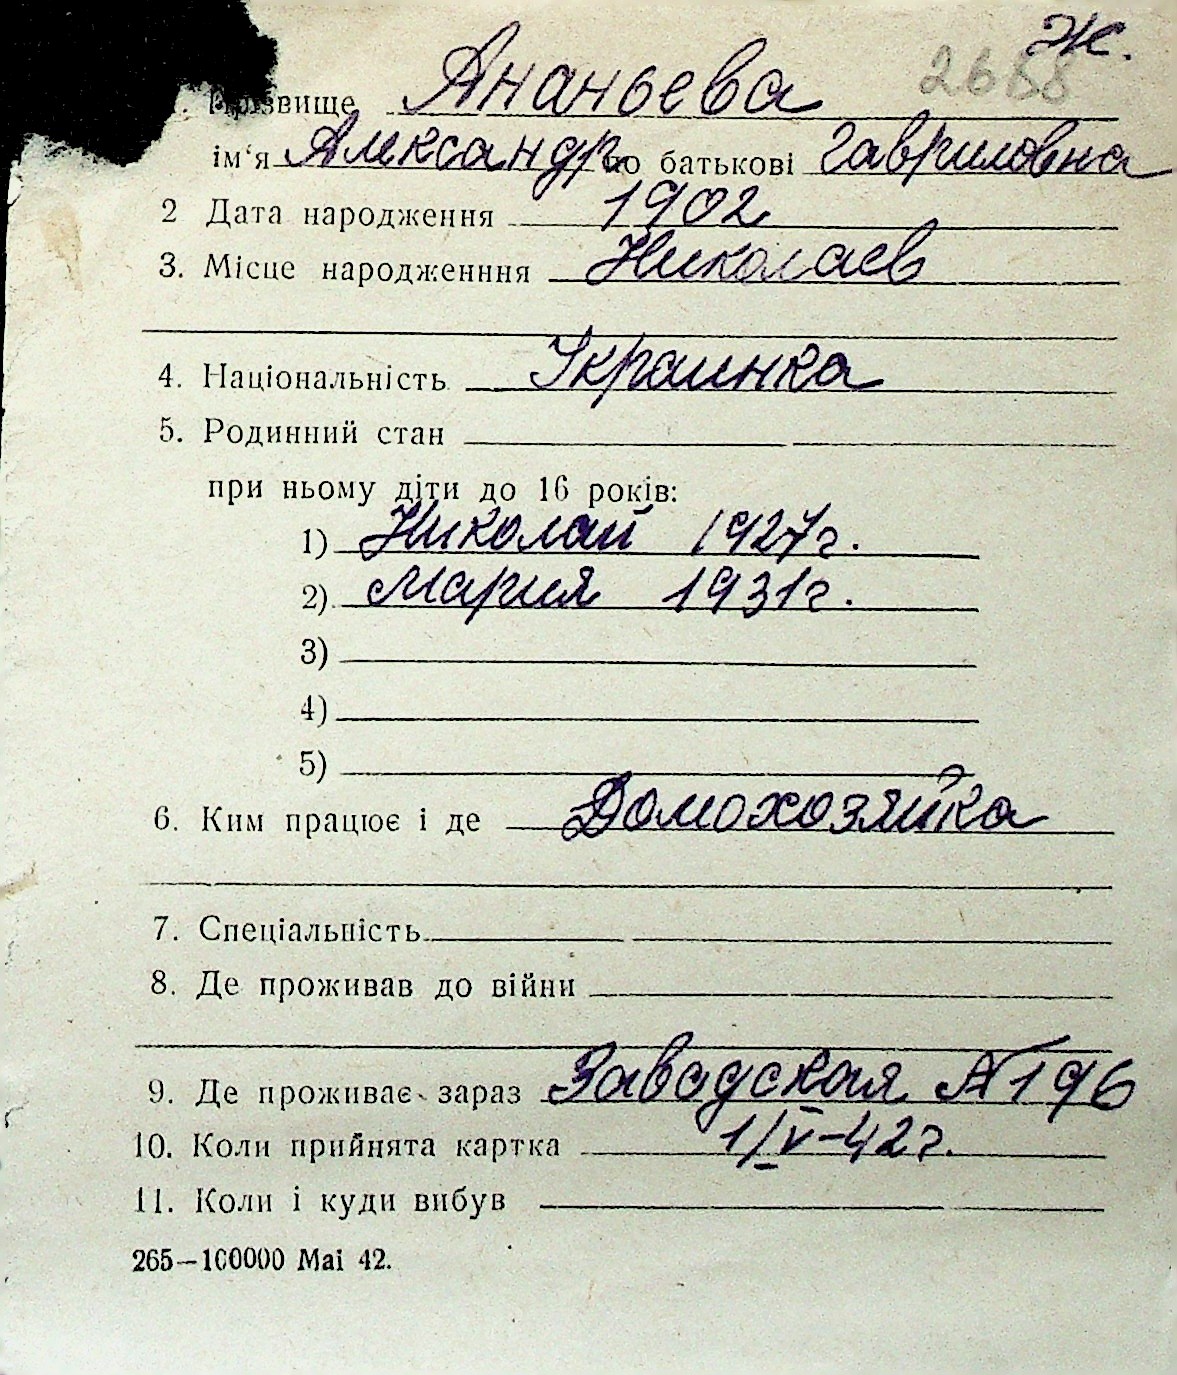 Ж.
2658
1. Прізвище Ананьева
ім'я Александр по батькові Гавриловна
2 Дата народження 1902
3. Місце народженння Николаев
4. Національність Украинка
5. Родинний стан
при ньому діти до 16 років:
1) Николай 1927г.
2) Мария 1931г.
3)
4)
5)
6. Ким працює і де Домохозяйка
7. Спеціальність
8. Де проживав до війни
9. Де проживає зараз Заводская № 196
10. Коли прийнята картка 1/V-42г.
11. Коли і куди вибув
265—100000 Mai 42.